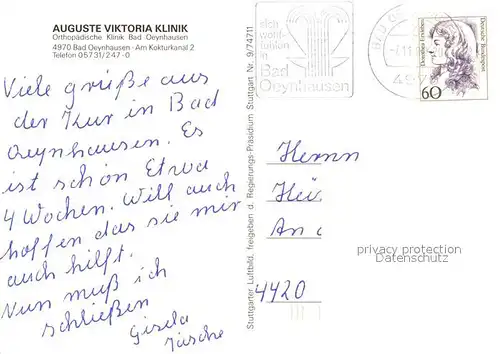 AUGUSTE VIKTORIA KLINIK
Orthopädische Klinik Bad Oeynhausen
4970 Bad Oeynhausen · Am Kokturkanal 2
Telefon 05731/247-0
Viele grüße aus
der Kur in Bad
Oeynhausen. Es
ist schön Etwa
4 Wochen. Will auch
hoffen das sie mir
auch hilft.
Nun muß ich
schließen
Gisela
Stuttgarter Luftbild, freigeben d. Regierungs-Präsidium Stuttgart Nr. 9/74711
sich
wohl-
fühlen
in
Bad
Oeynhausen
BAD
Deutsche Bundespost
60
Herrn
An
4420
privacy protection
Datenschutz